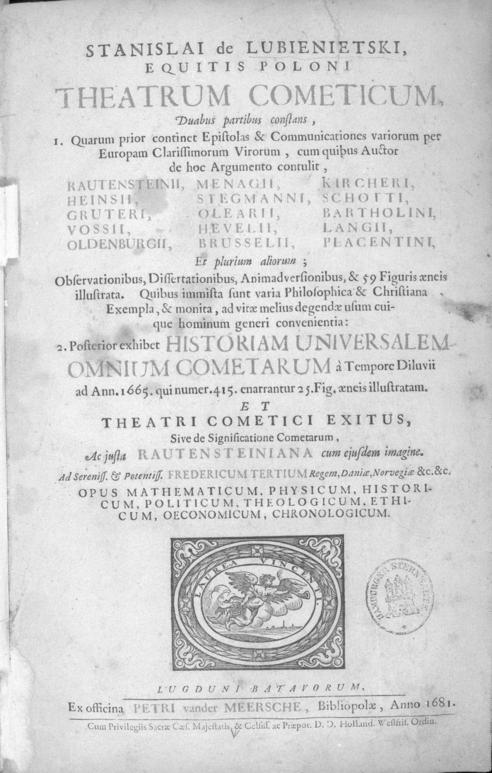 STANISLAI de LUBIENIETSKI,
EQUITIS POLONI
THEATRUM COMETICUM,
Duabus partibus conſtans,
1. Quarum prior continet Epiſtolas & Communicationes variorum per
Europam Clariſſimorum Virorum, cum quibus Auctor
de hoc Argumento contulit,
RAUTENSTEINII, MENAGII, KIRCHERI,
HEINSII, STEGMANNI, SCHOTTI,
GRUTERI, OLEARII, BARTHOLINI,
VOSSII, HEVELII, LANGII,
OLDENBURGII, BRUSSELII, PLACENTINI,
Et plurium aliorum;
Obſervationibus, Diſſertationibus, Animadverſionibus, & 59 Figuris æneis
illuſtrata. Quibus immiſta ſunt varia Philoſophica & Chriſtiana
Exempla, & monita, ad vitæ melius degendæ uſum cui-
que hominum generi convenientia:
2. Poſterior exhibet HISTORIAM UNIVERSALEM
OMNIUM COMETARUM à Tempore Diluvii
ad Ann. 1665. qui numer. 415. enarrantur 25. Fig. æneis illuſtratam.
ET
THEATRI COMETICI EXITUS,
Sive de Significatione Cometarum,
Ac juſta RAUTENSTEINIANA cum ejuſdem imagine.
Ad Sereniſſ. & Potentiſſ. FREDERICUM TERTIUM Regem, Daniæ, Norvegiæ &c. &c.
OPUS MATHEMATICUM, PHYSICUM, HISTORI-
CUM, POLITICUM, THEOLOGICUM, ETHI-
CUM, OECONOMICUM, CHRONOLOGICUM.
LAUREA VINCENTI.
HAMBURGER STERNWARTE
LUGDUNI BATAVORUM,
Ex officina PETRI vander MEERSCHE, Bibliopolæ, Anno 1681.
Cum Privilegiis Sacræ Cæſ. Majeſtatis, & Celſiſſ. ac Præpot. D. D. Holland. Weſtfriſ. Ordin.